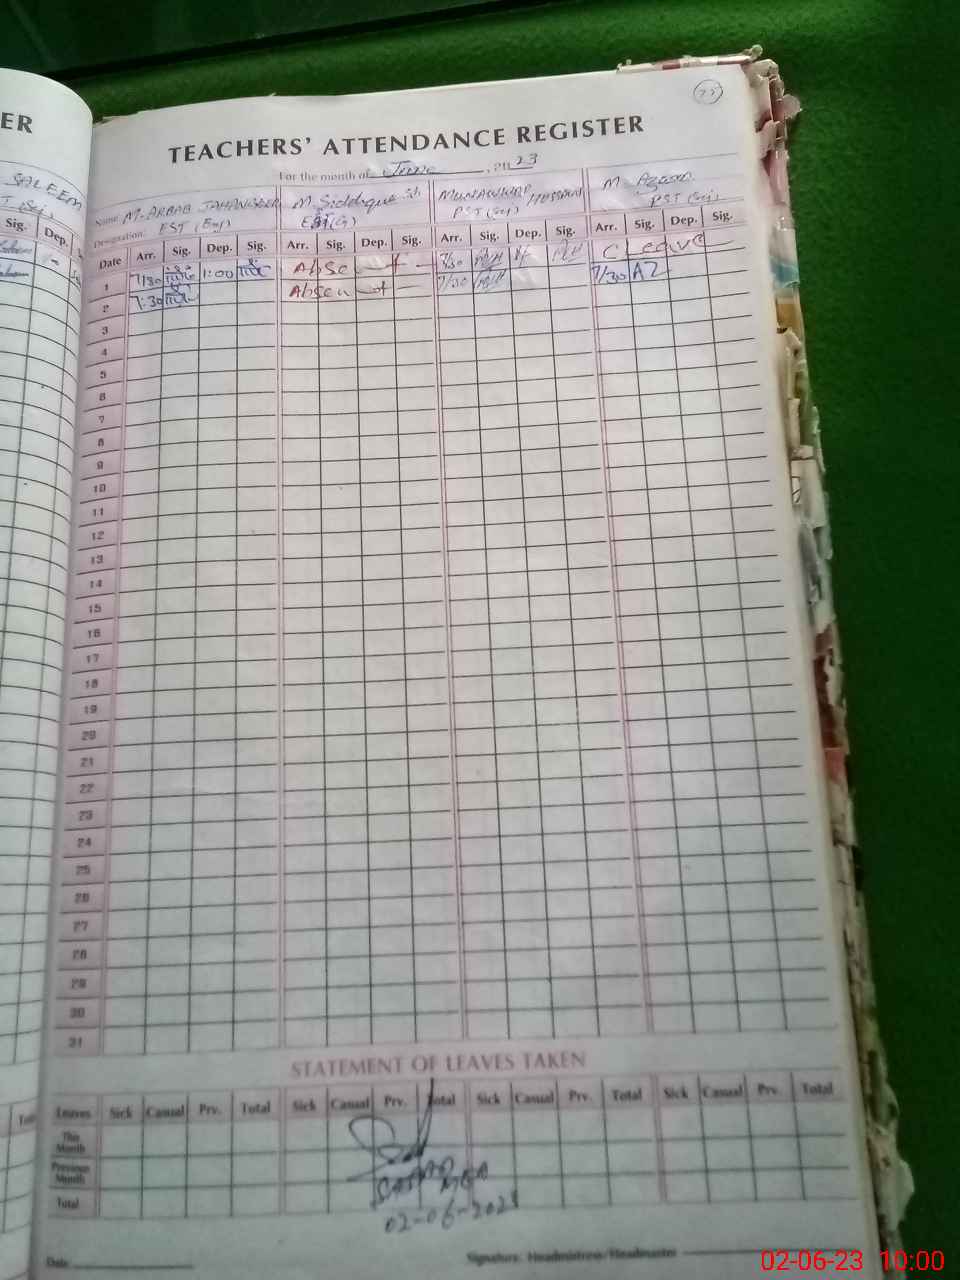 ER
SALEEM
Sig. Dep.
25
TEACHERS' ATTENDANCE REGISTER
For the month of June, 2023
Name M-ARBAB JAHANGEER M. Siddique Sh MUNAWWAR HUSSAIN M. Azeem
Designation. EST (Eng) EST(G) PST (Sci) PST (Sci)
Date Arr. Sig. Dep. Sig. Arr. Sig. Dep. Sig. Arr. Sig. Dep. Sig. Arr. Sig. Dep. Sig.
1 7/30 1:00 Absent 7/30 C Leave
2 7:30 Absent 7/30 7/30 AZ
3
4
5
6
7
8
9
10
11
12
13
14
15
16
17
18
19
20
21
22
23
24
25
26
27
28
29
30
31
STATEMENT OF LEAVES TAKEN
Leaves Sick Casual Prv. Total Sick Casual Prv. Total Sick Casual Prv. Total Sick Casual Prv. Total
This Month
Previous Month
Total
02-06-2023
Date
Signature: Headmistress/Headmaster
02-06-23 10:00